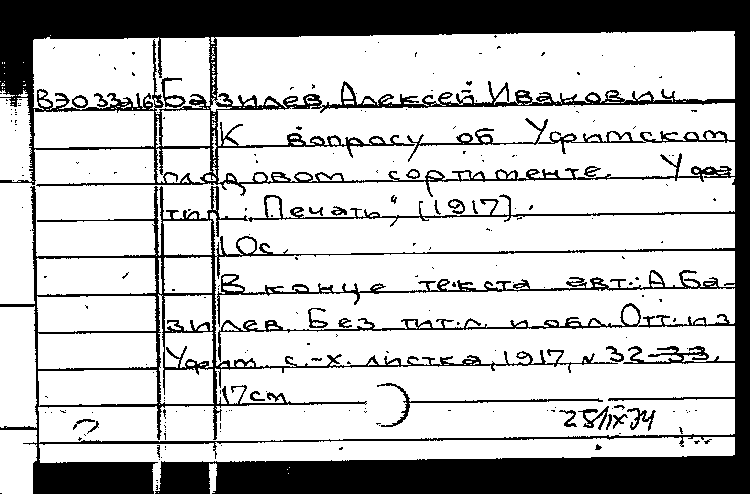 ВЭО33а163 Базилев, Алексей Иванович
К вопросу об Уфимском
плодовом сортименте. Уфа,
тип. "Печать", [1917].
10с.
В конце текста авт.: А. Ба-
зилев. Без тит.л. и обл. Отт. из
Уфим. с.-х. листка, 1917, № 32-33.
17см
28/IX 74